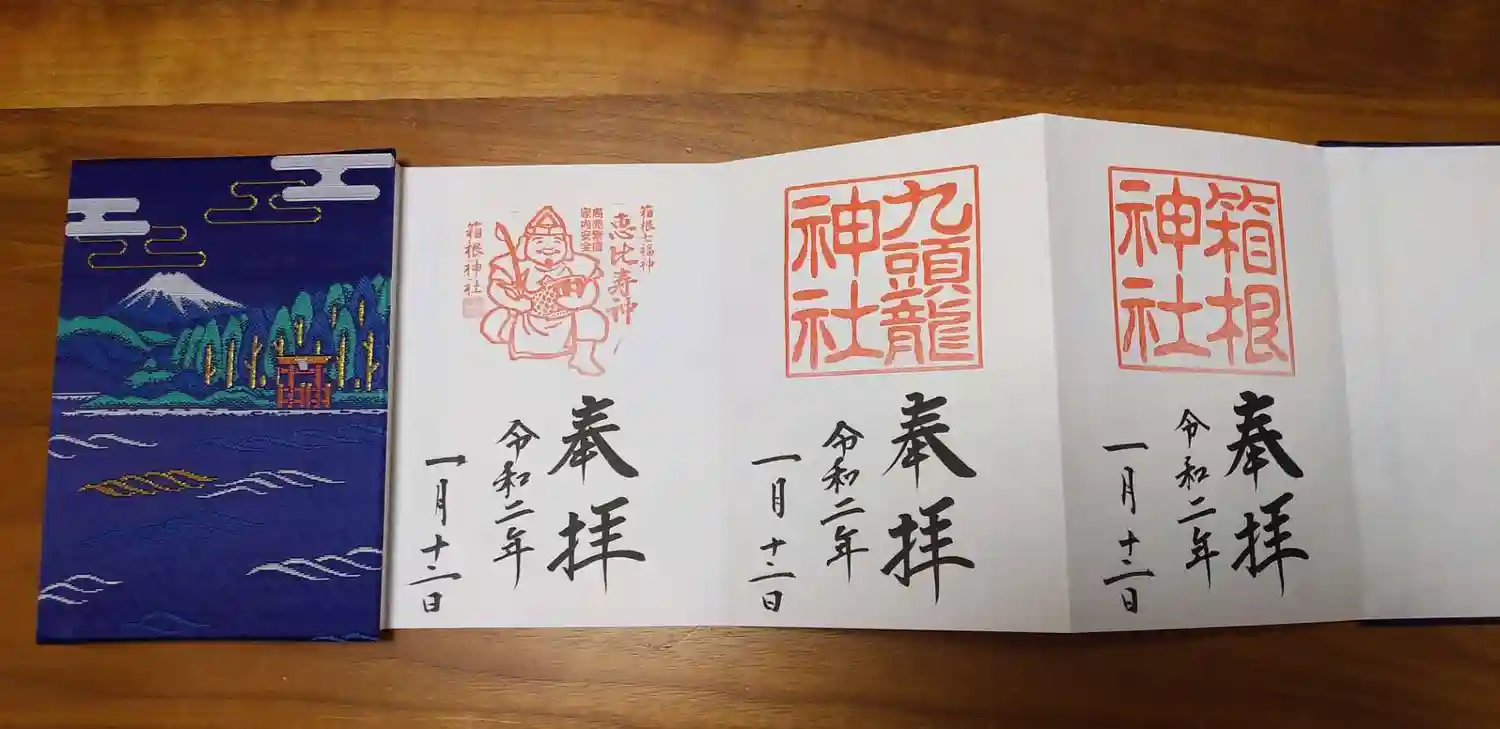 箱根
神社
奉拝
令和二年
一月十二日
九頭龍
神社
奉拝
令和二年
一月十二日
箱根七福神
恵比寿神
商売繁盛
家内安全
箱根神社
奉拝
令和二年
一月十二日